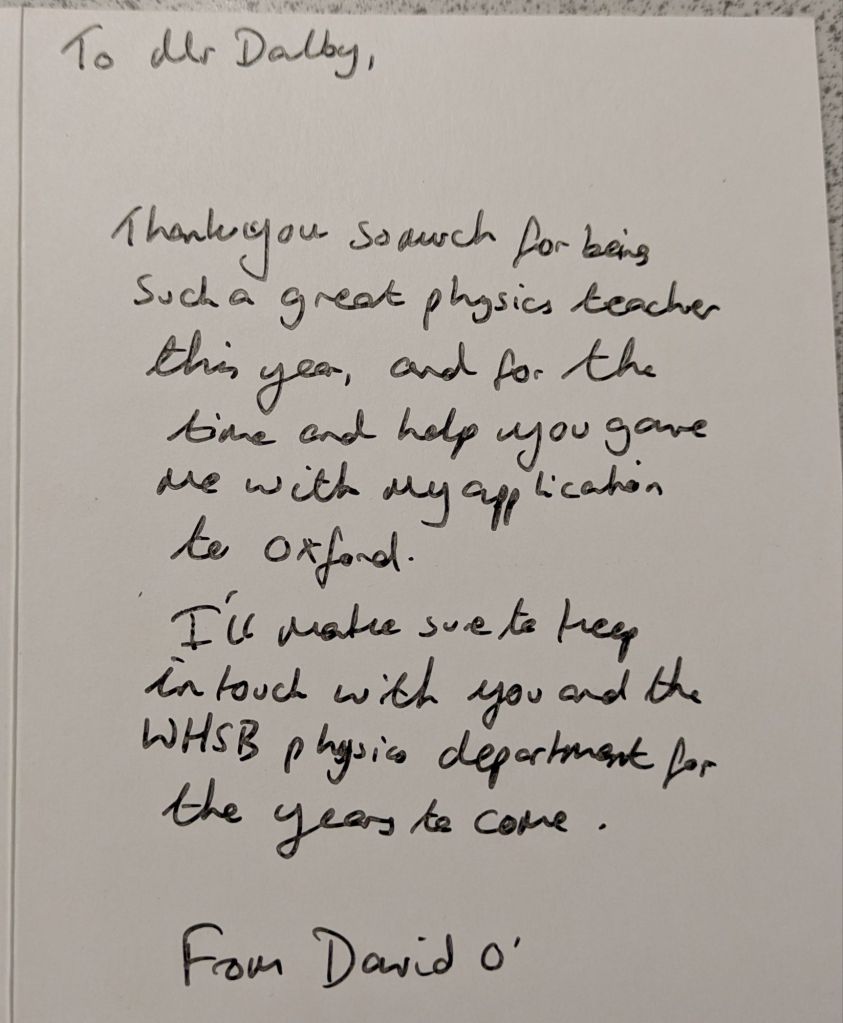 To Mr Dalby,
Thank you so much for being
such a great physics teacher
this year, and for the
time and help you gave
me with my application
to Oxford.
I'll make sure to keep
in touch with you and the
WHSB physics department for
the years to come.
From David O'